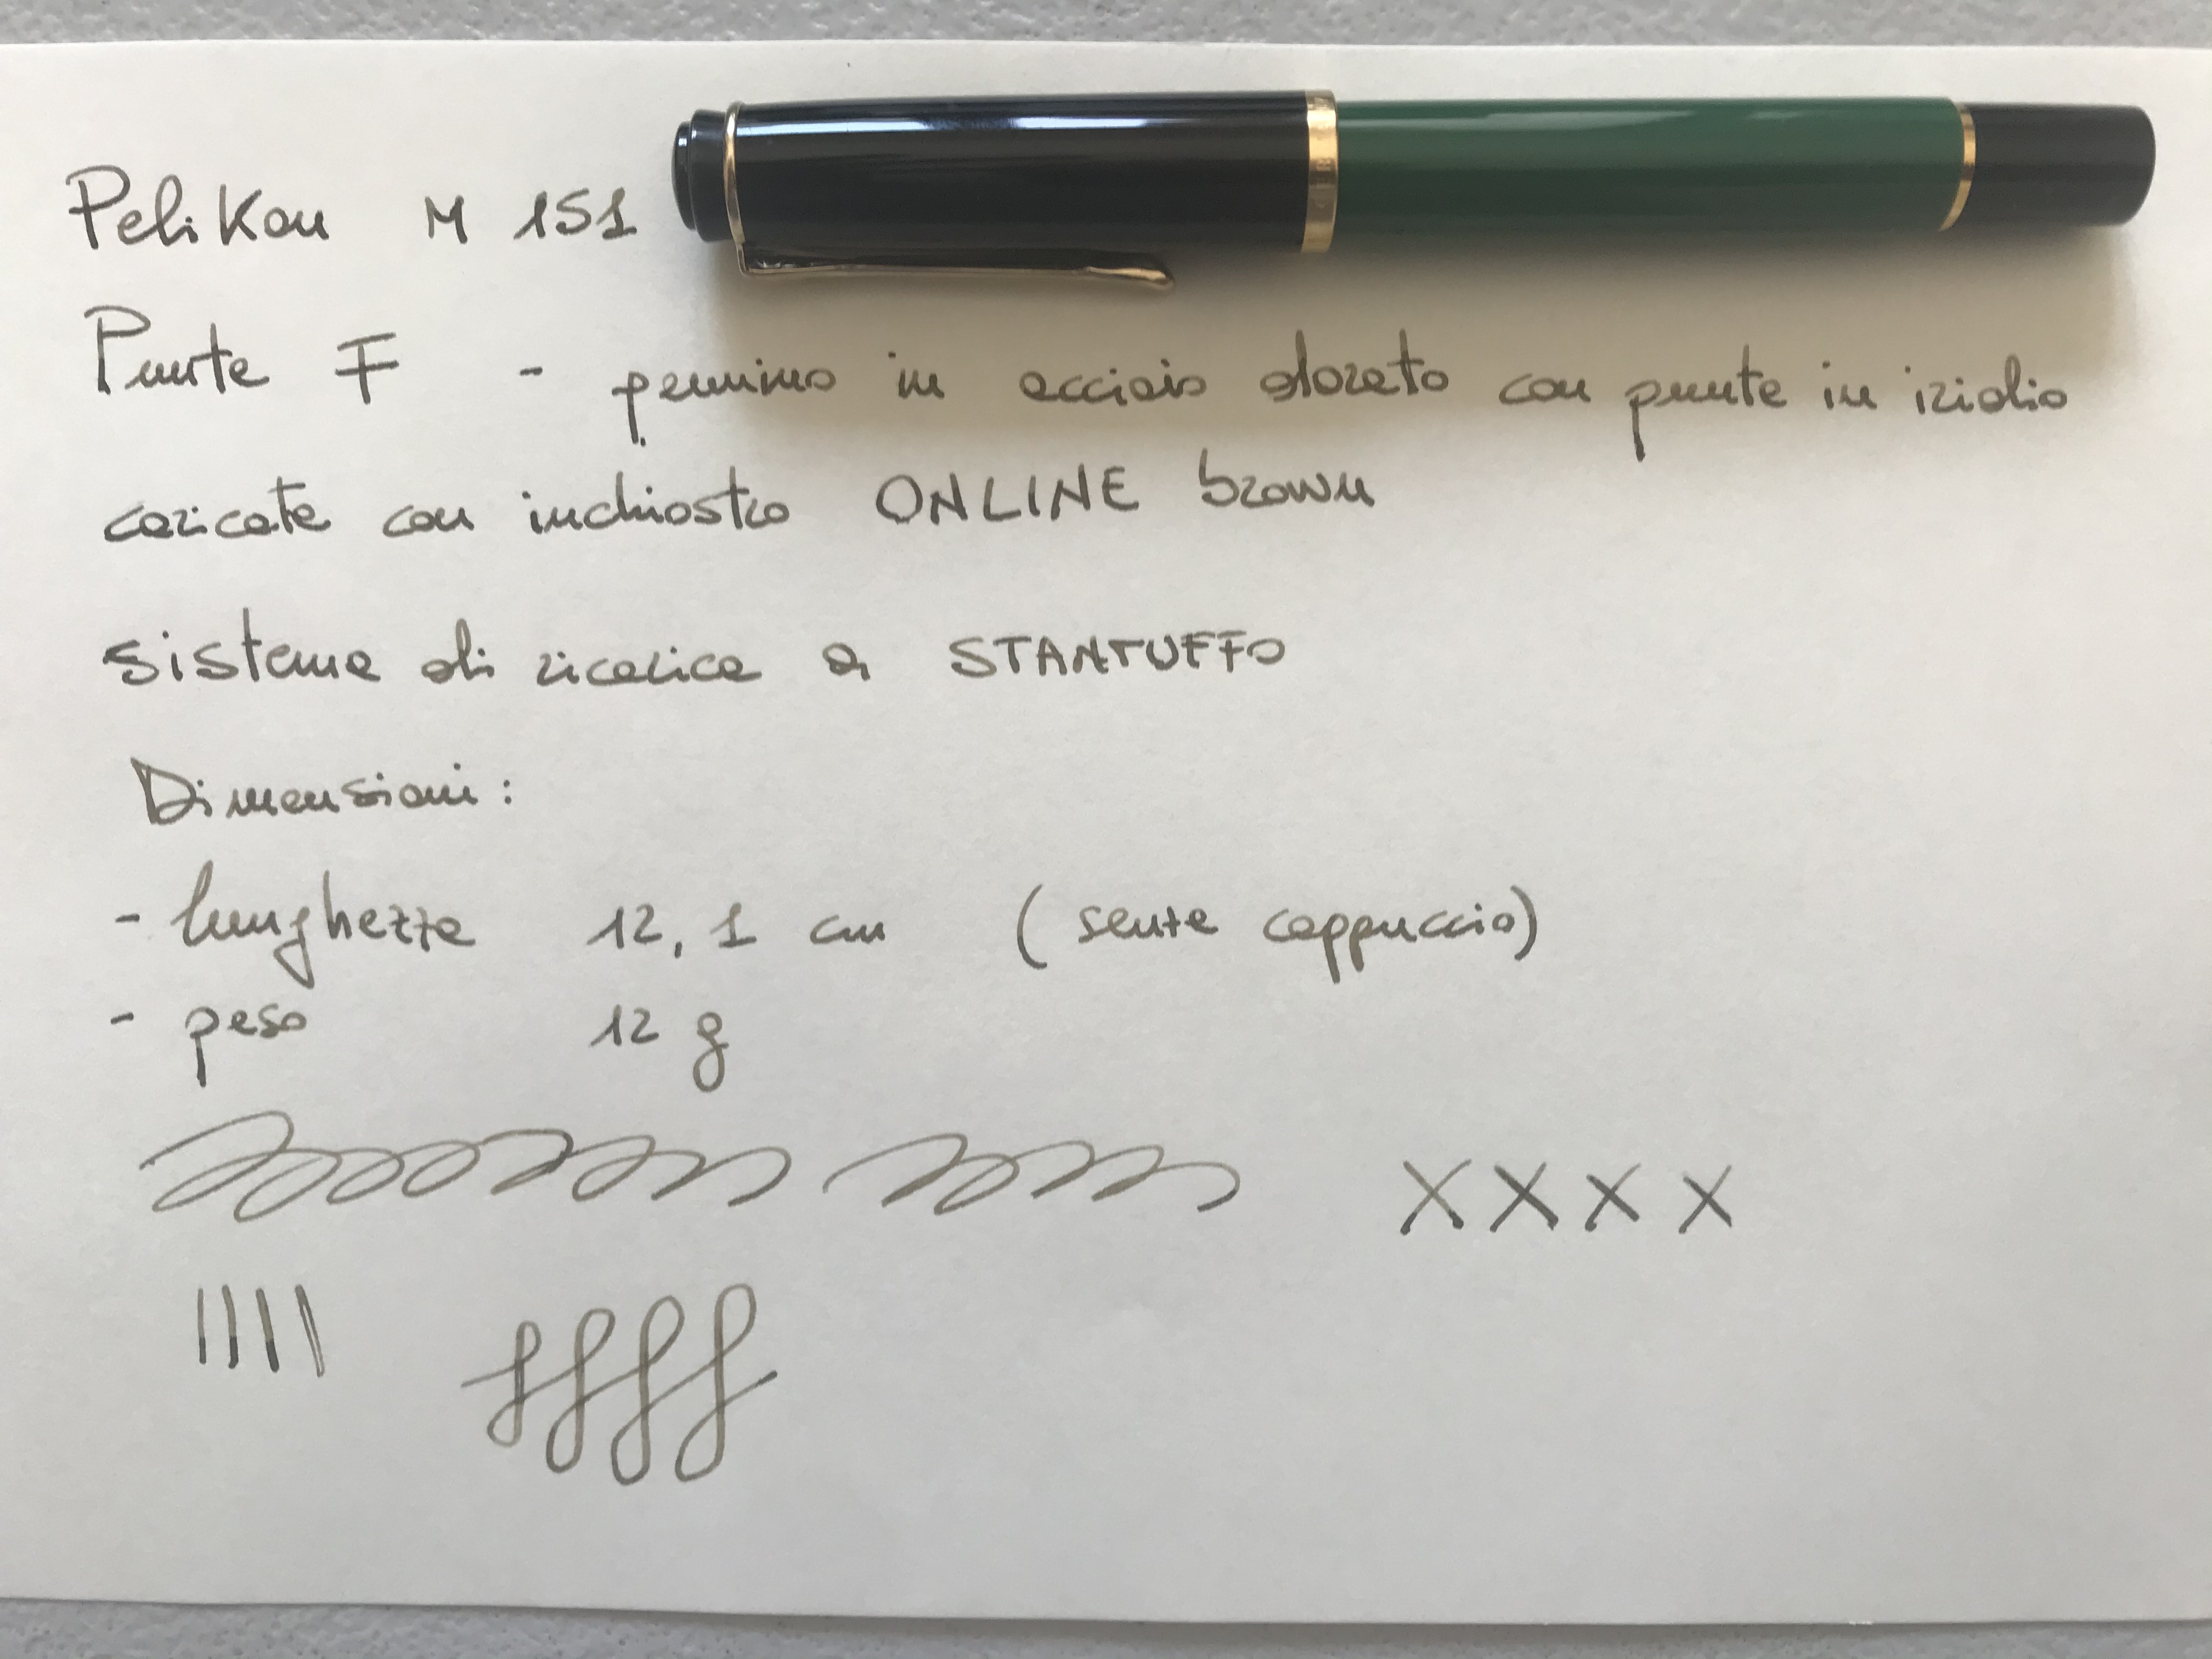 Pelikan M 151
Punta F - pennino in acciaio dorato con punta in iridio
caricata con inchiostro ONLINE brown
sistema di ricarica a STANTUFFO
Dimensioni:
- lunghezza 12,1 cm (senza cappuccio)
- peso 12 g
x x x x